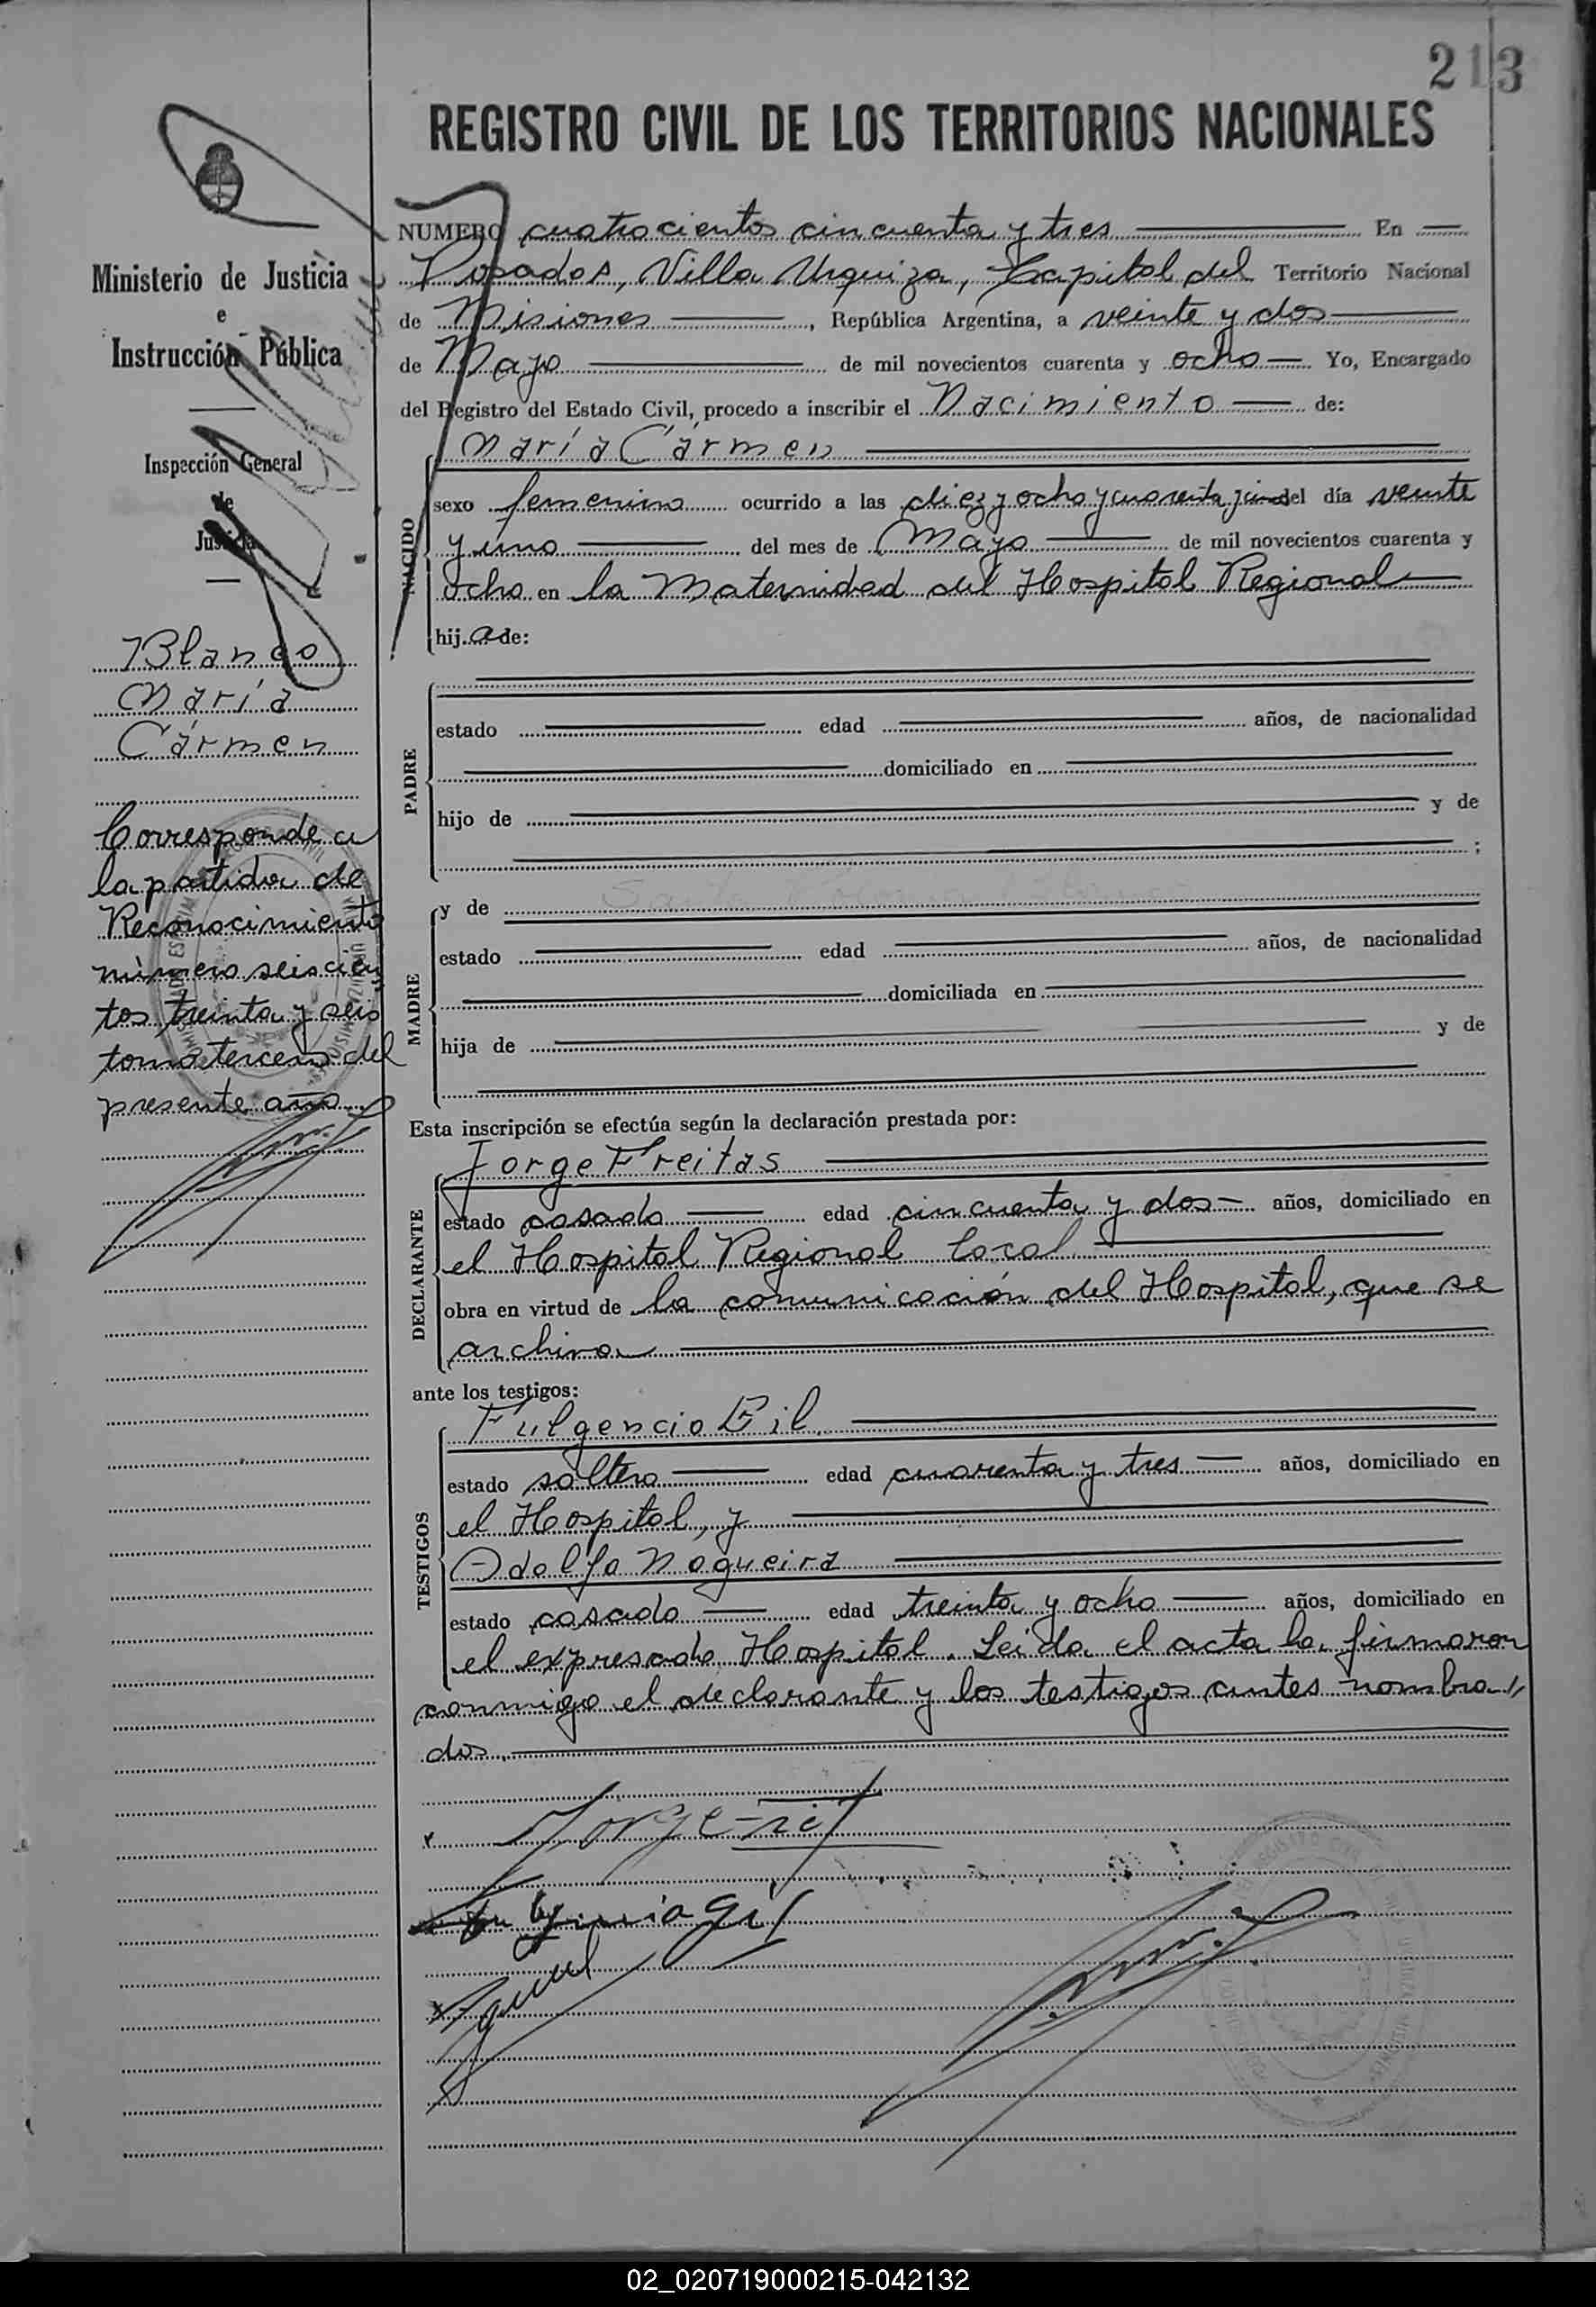 213
REGISTRO CIVIL DE LOS TERRITORIOS NACIONALES
Ministerio de Justicia
e
Instrucción Pública
Inspección General
de
Justicia
Blanco
María
Cármen
Corresponde a
la partida de
Reconocimiento
número seiscien
tos treinta y seis
tomo tercero del
presente año
NUMERO cuatrocientos cincuenta y tres En
Posadas, Villa Urquiza, Capital del Territorio Nacional
de Misiones, República Argentina, a veinte y dos
de Mayo de mil novecientos cuarenta y ocho Yo, Encargado
del Registro del Estado Civil, procedo a inscribir el Nacimiento de:
María Cármen
NACIDO
sexo femenino ocurrido a las diez y ocho y cuarenta y cinco del día veinte
y uno del mes de Mayo de mil novecientos cuarenta y
ocho en la Maternidad del Hospital Regional
hij.a de:
PADRE
estado edad años, de nacionalidad
domiciliado en
hijo de y de
;
MADRE
y de
estado edad años, de nacionalidad
domiciliada en
hija de y de
Esta inscripción se efectúa según la declaración prestada por:
Jorge Freitas
DECLARANTE
estado casado edad cincuenta y dos años, domiciliado en
el Hospital Regional local
obra en virtud de la comunicación del Hospital, que se
archiva
ante los testigos:
Fulgencio Gil
TESTIGOS
estado soltero edad cuarenta y tres años, domiciliado en
el Hospital, y
Adolfo Nogueira
estado casado edad treinta y ocho años, domiciliado en
el expresado Hospital. Leida el acta la firmaron
conmigo el declarante y los testigos antes nombra
dos.
Jorge
Gil
02_020719000215-042132